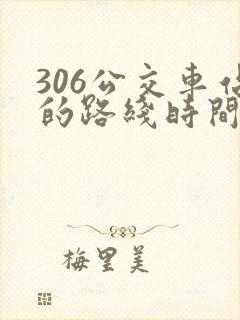 306公交車
的路綫時間
梅里美